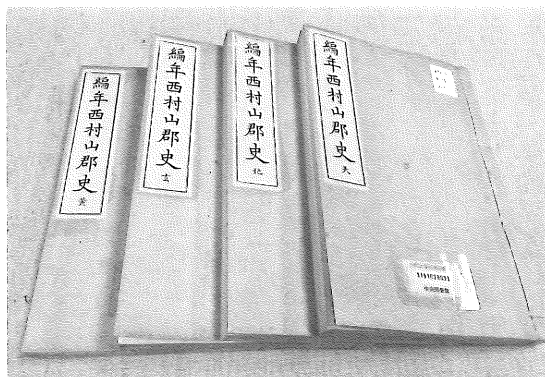 編年西村山郡史 天
編年西村山郡史 地
編年西村山郡史 玄
編年西村山郡史 黄